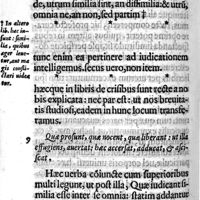 de, utrum similia sint, an dissimilia: & utrū
omnia ne, an non, sed partim †
† In altero
lib. hæc in-
sunt: simi-
lia, quibus
ager
tur, aut ma
gis consi-
liari videa
tur.
tunc enim ea pertinere ad iudicationem
intelligemus, secus uero, non item.
hæcque in libris de crisibus sunt recte a no
bis explicata: nec par est: ut nos breuita-
tis studiosi, eadem in hunc locum transfe-
ramus.
9
Quæ prosunt, quæ nocent, quæ liberant: ut illa
effugiens, auertat: hæc accersat, adducat, & asci-
scat.
Hæc uerba cōiuncte cum superioribus
multi legunt, ut post illa, Quæ iudicant si-
milia esse inter se omnia: statim addatur